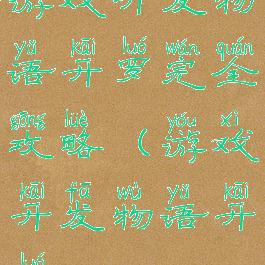 游戏开发物
yǔ kāi luó wán quán
语开罗完全
gōng lüè yóu xì
攻略（游戏
kāi fā wù yǔ kāi
开发物语开
luó